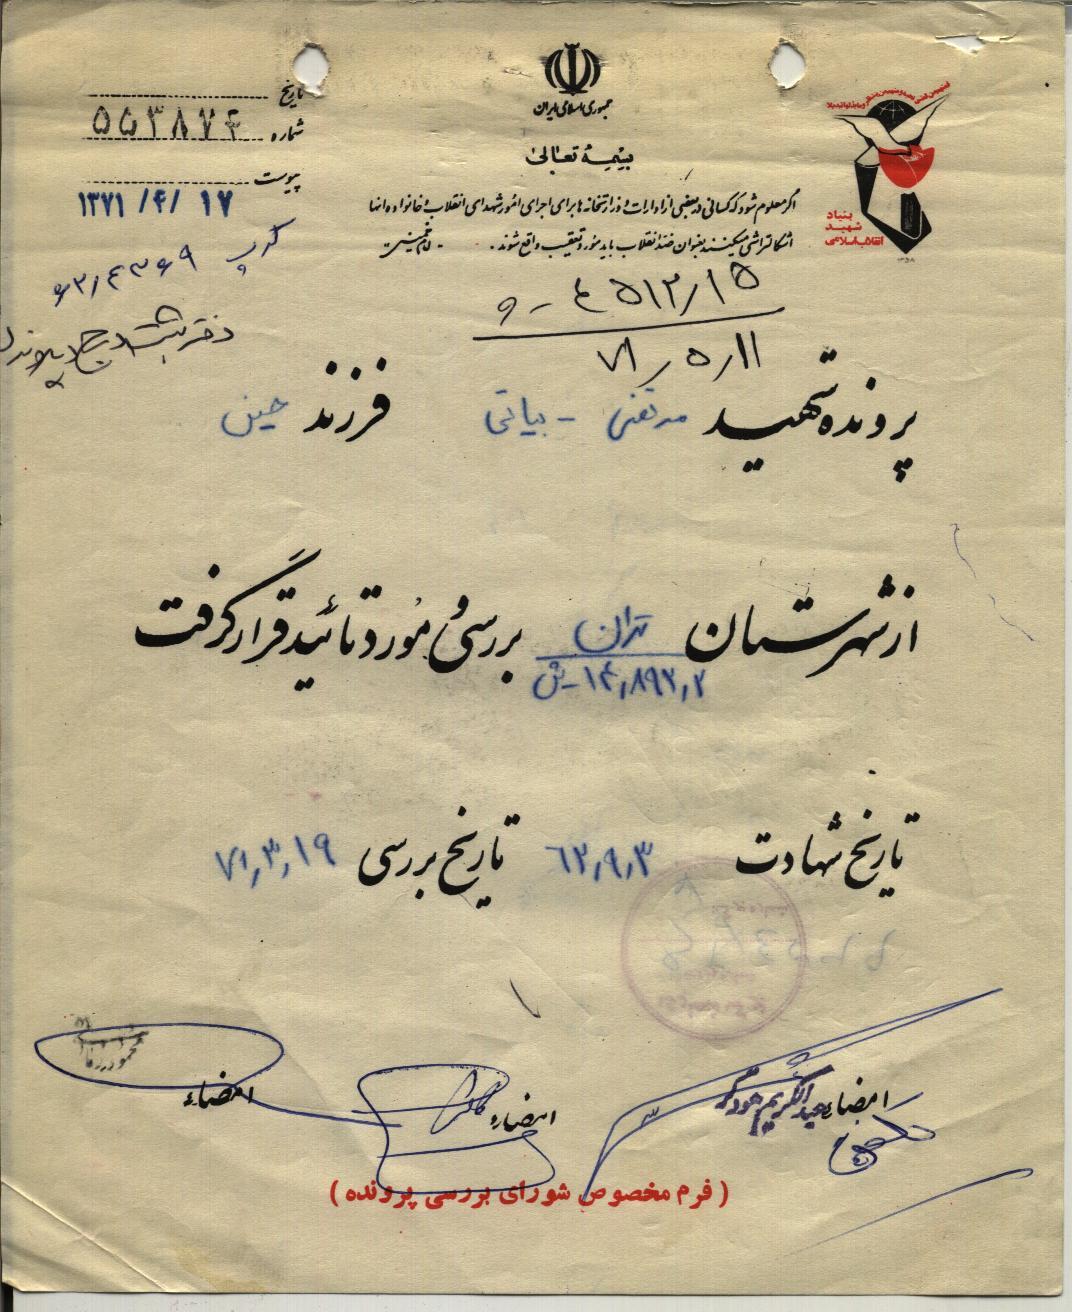 جمهوری اسلامی ایران
بسمه تعالی
تاریخ
شماره ۵۵۳۸۷۴
پیوست
۱۳۷۱ /۴/ ۱۷
اگر معلوم شود که کسانی در بعضی از ادارات و وزارتخانه ها برای اجرای امور شهدای انقلاب و خانواده آنها
اشکالتراشی میکنند بعنوان ضد انقلاب باید مورد تعقیب واقع شوند . - امام خمینی -
بنیاد
شهید
انقلاب اسلامی
۱۳۵۸
۷۱٫۵٫۱۱
پرونده شهید مرتضی - بیاتی فرزند حسن
از شهرستان تهران بررسی و مورد تائید قرار گرفت
۱۴٫۸۹۲٫۲-ش
تاریخ شهادت ۶۲٫۹٫۳ تاریخ بررسی ۷۱٫۳٫۱۹
امضاء امضاء امضاء
( فرم مخصوص شورای بررسی پرونده )